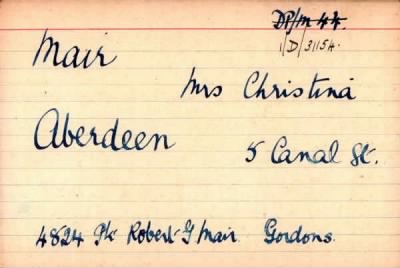 DP/M 44.
1/D/3154.
Mair
Mrs Christina
Aberdeen
5 Canal St.
4824 Pte Robert G Mair Gordons